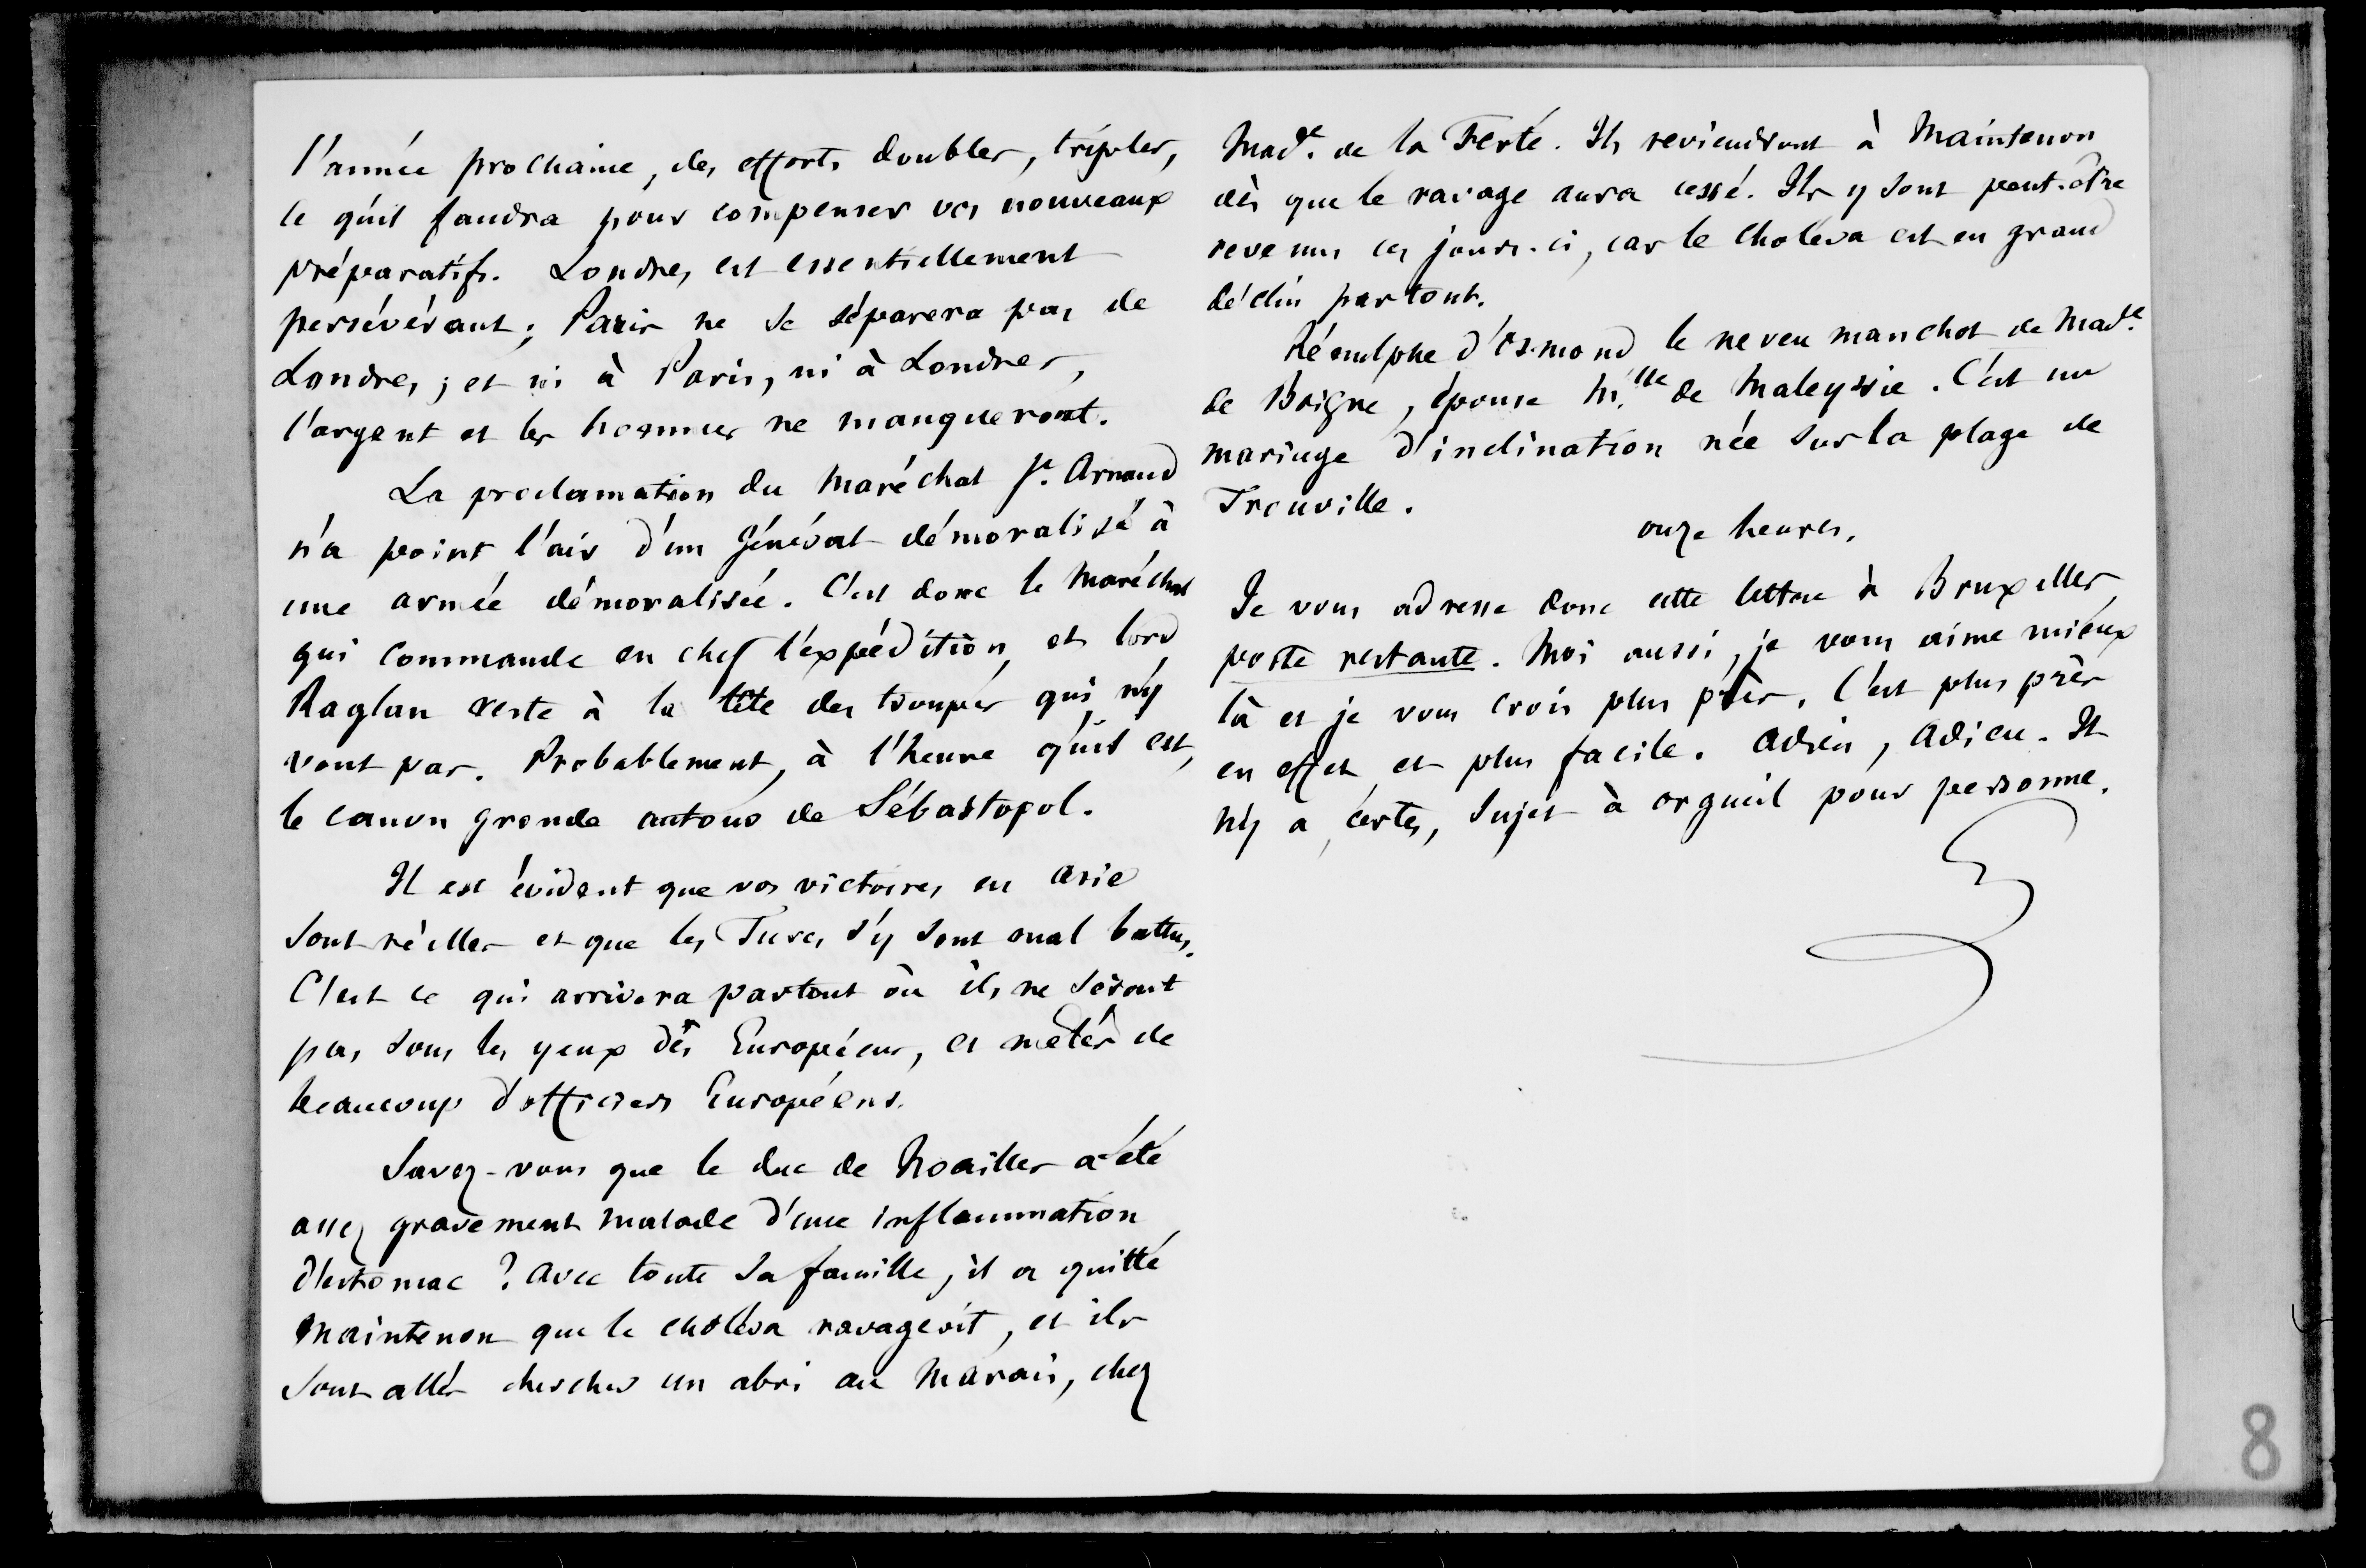 l'année prochaine, des efforts doubles, triples,
ce qu'il faudra pour compenser vos nouveaux
préparatifs. Londres est essentiellement
persévérant ; Paris ne se séparera pas de
Londres ; et ni à Paris, ni à Londres,
l'argent et les hommes ne manqueront.
La proclamation du maréchal St. Arnaud
n'a point l'air d'un Général démoralisé à
une armée démoralisée. C'est donc le maréchal
qui commande en chef l'expédition, et lord
Raglan reste à la tête des troupes qui n'y
vont pas. Probablement, à l'heure qu'il est,
le canon gronde autour de Sébastopol.
Il est évident que vos victoires en Asie
sont réelles et que les Turcs s'y sont mal battus.
C'est ce qui arrivera partout où ils ne seront
pas sous les yeux des Européens, et mêlés de
beaucoup d'officiers Européens.
Savez-vous que le duc de Noailles a été
assez gravement malade d'une inflammation
d'estomac ? Avec toute sa famille, il a quitté
Maintenon que le choléra ravageoit, et ils
sont allés chercher un abri au Marais, chez
Made. de la Ferté. Ils reviendront à Maintenon
dès que le ravage aura cessé. Ils y sont peut-être
revenus ces jours-ci, car le choléra est en grand
déclin partout.
d'Osmond le neveu manchot de Made.
de Boigne, épouse Mlle de Maleyssie. C'est un
mariage d'inclination née sur la plage de
Trouville.
onze heures.
Je vous adresse donc cette lettre à Bruxelles,
poste restante. Moi aussi, je vous aime mieux
là et je vous crois plus près. C'est plus près
en effet et plus facile. Adieu, Adieu. Il
n'y a, certes, sujet à orgueil pour personne.
8